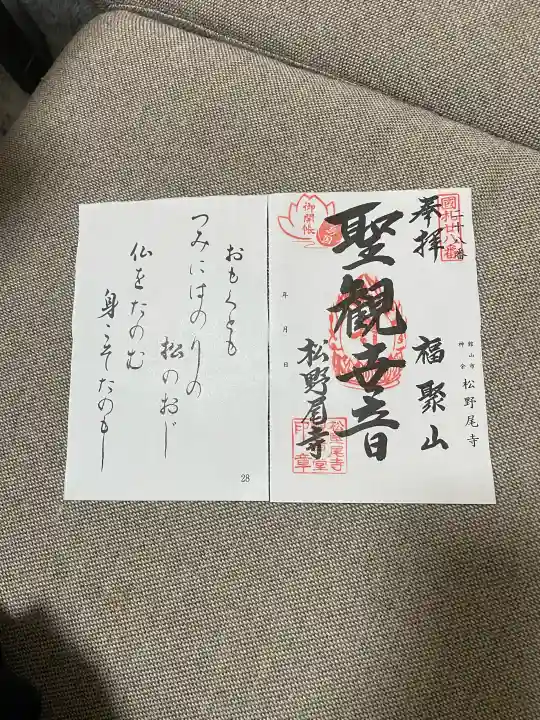 二十八番
國札廿八番
奉拝
福聚山
館山市
神余
松野尾寺
聖観世音
松野尾寺
御開帳
年 月 日
おもくとも
つみにはのりの
松のおじ
仏をたのむ
身こそたのもし
28